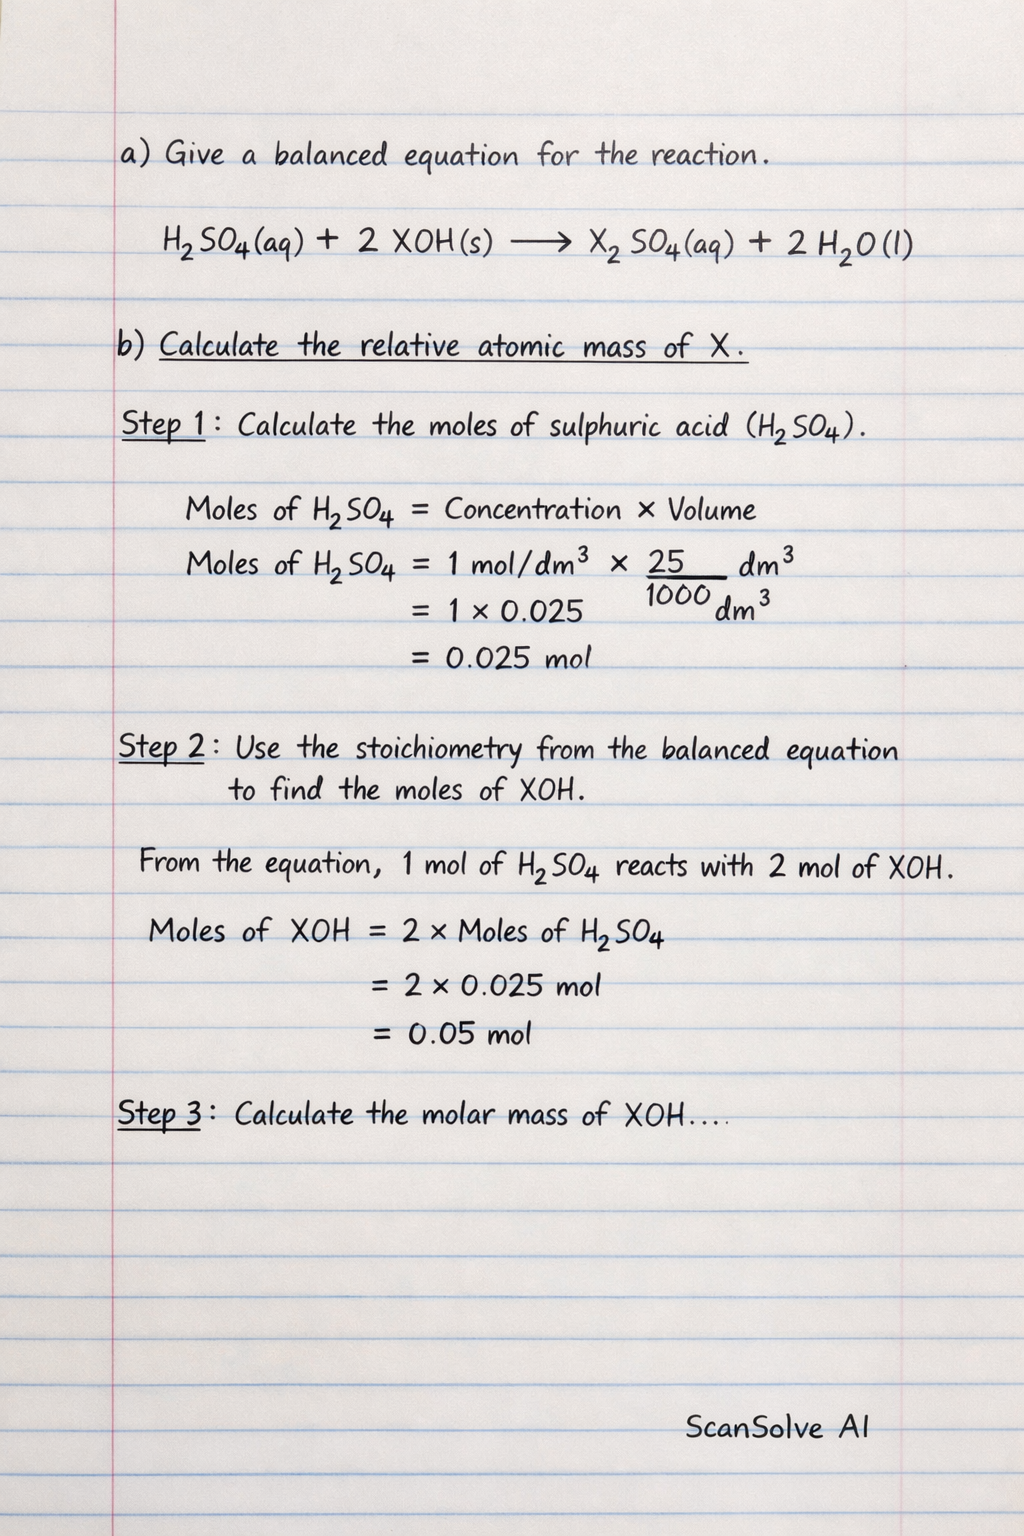 a) Give a balanced equation for the reaction.
H₂SO₄(aq) + 2 XOH(s) ⟶ X₂SO₄(aq) + 2 H₂O(l)
b) Calculate the relative atomic mass of X.
Step 1: Calculate the moles of sulphuric acid (H₂SO₄).
Moles of H₂SO₄ = Concentration × Volume
Moles of H₂SO₄ = 1 mol/dm³ × 25/1000 dm³ dm³
= 1 × 0.025
= 0.025 mol
Step 2: Use the stoichiometry from the balanced equation
to find the moles of XOH.
From the equation, 1 mol of H₂SO₄ reacts with 2 mol of XOH.
Moles of XOH = 2 × Moles of H₂SO₄
= 2 × 0.025 mol
= 0.05 mol
Step 3: Calculate the molar mass of XOH....
ScanSolve AI